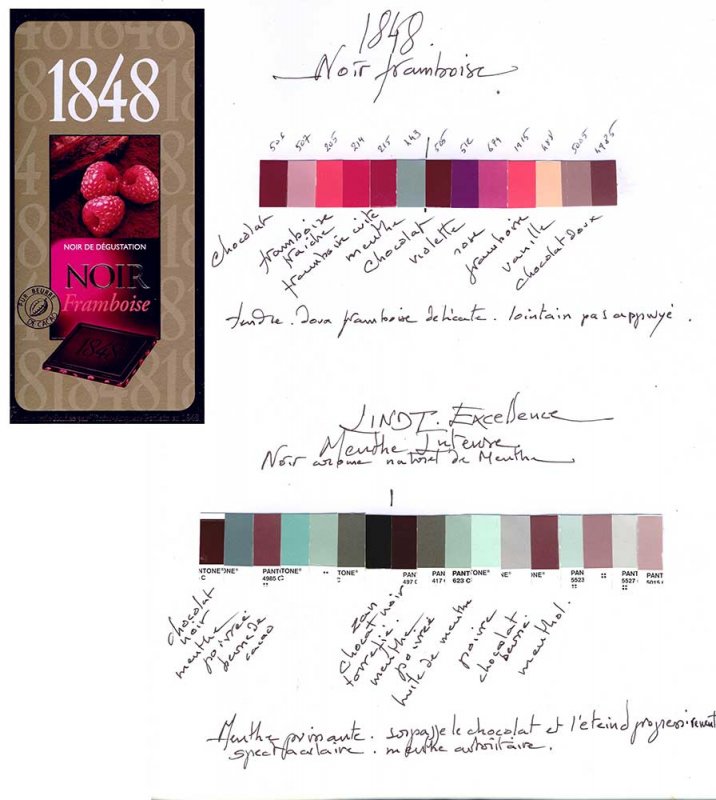 1848
NOIR DE DÉGUSTATION
NOIR
Framboise
PUR BEURRE
DE CACAO
1848
1848.
Noir framboise.
505 507 205 214 215 443 505 512 674 1915 5005 4985
chocolat
framboise
fraîche
framboise cuite
menthe
chocolat
violette
rose
framboise
vanille
chocolat doux
tendre. doux framboise délicate. lointain pas appuyé.
LINDT. Excellence
Menthe Intense.
Noir arôme naturel de Menthe
PANTONE® PANTONE® PAN PAN PANTONE® PAN PAN PANT
C 4985 C 497 C 417 623 C 5523 5527 5015
chocolat
noir
menthe
poivrée
beurre de
cacao
zan
chocolat noir
torréfié.
menthe
poivrée
huile de menthe
poivre
chocolat
menthol.
Menthe puissante. surpasse le chocolat et l'éteind progressivement
spectaculaire. menthe autoritaire.